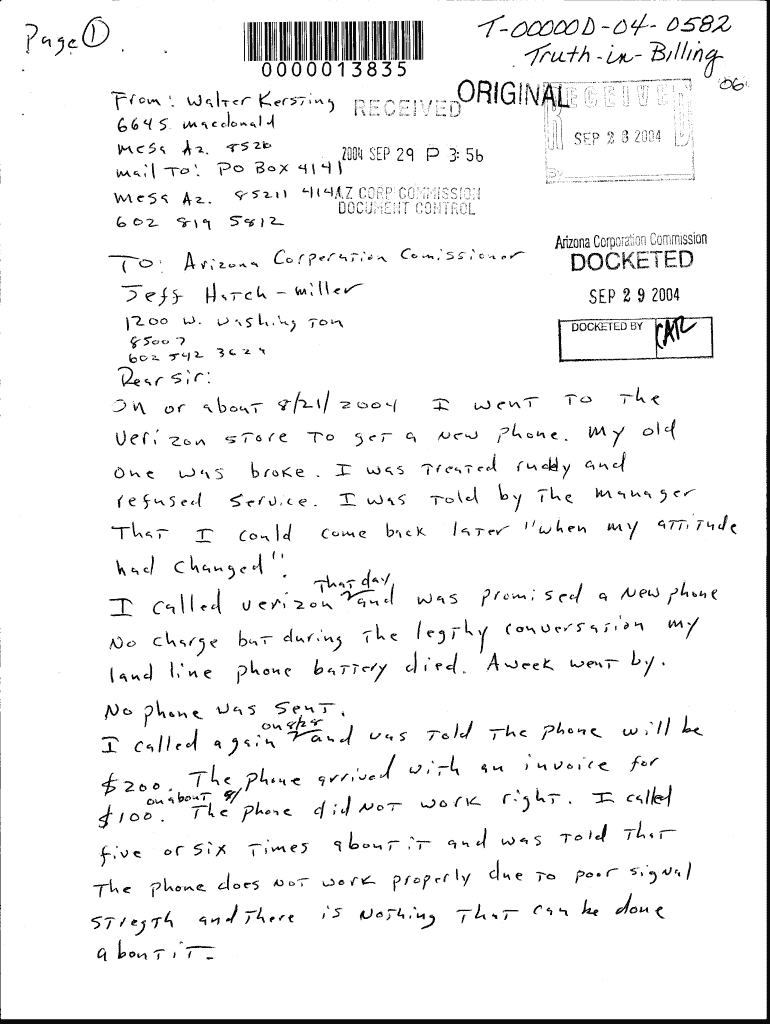 Page 1
0000013835
T-00000D-04-0582
Truth-in-Billing
From: Walter Kersting
RECEIVED
ORIGINAL
RECEIVED
664 S. macdonald
SEP 28 2004
mesa Az. 8520
2004 SEP 29 P 3:56
mail To: PO Box 4141
mesa Az. 85211 4141
AZ CORP COMMISSION
DOCUMENT CONTROL
602 819 5812
Arizona Corporation Commission
DOCKETED
SEP 29 2004
DOCKETED BY
To: Arizona Corperation Comissioner
Jeff Hatch-miller
1200 W. Washington
85007
602 542 3625
Dear Sir:
On or about 8/21/2004 I went to the
verizon store to get a new phone. my old
one was broke. I was treated rudly and
refused service. I was told by the manager
That I could come back later "when my attitude
had changed".
That day
I called verizon and was promised a new phone
No charge but during the legthy conversation my
land line phone battery died. A week went by.
No phone was sent.
on 8/28
I called again and was told the phone will be
$200. The phone arrived with an invoice for
on about 9/
$100. The phone did not work right. I called
five or six times about it and was told that
The phone does not work properly due to poor signal
stregth and there is nothing that can be done
about it.